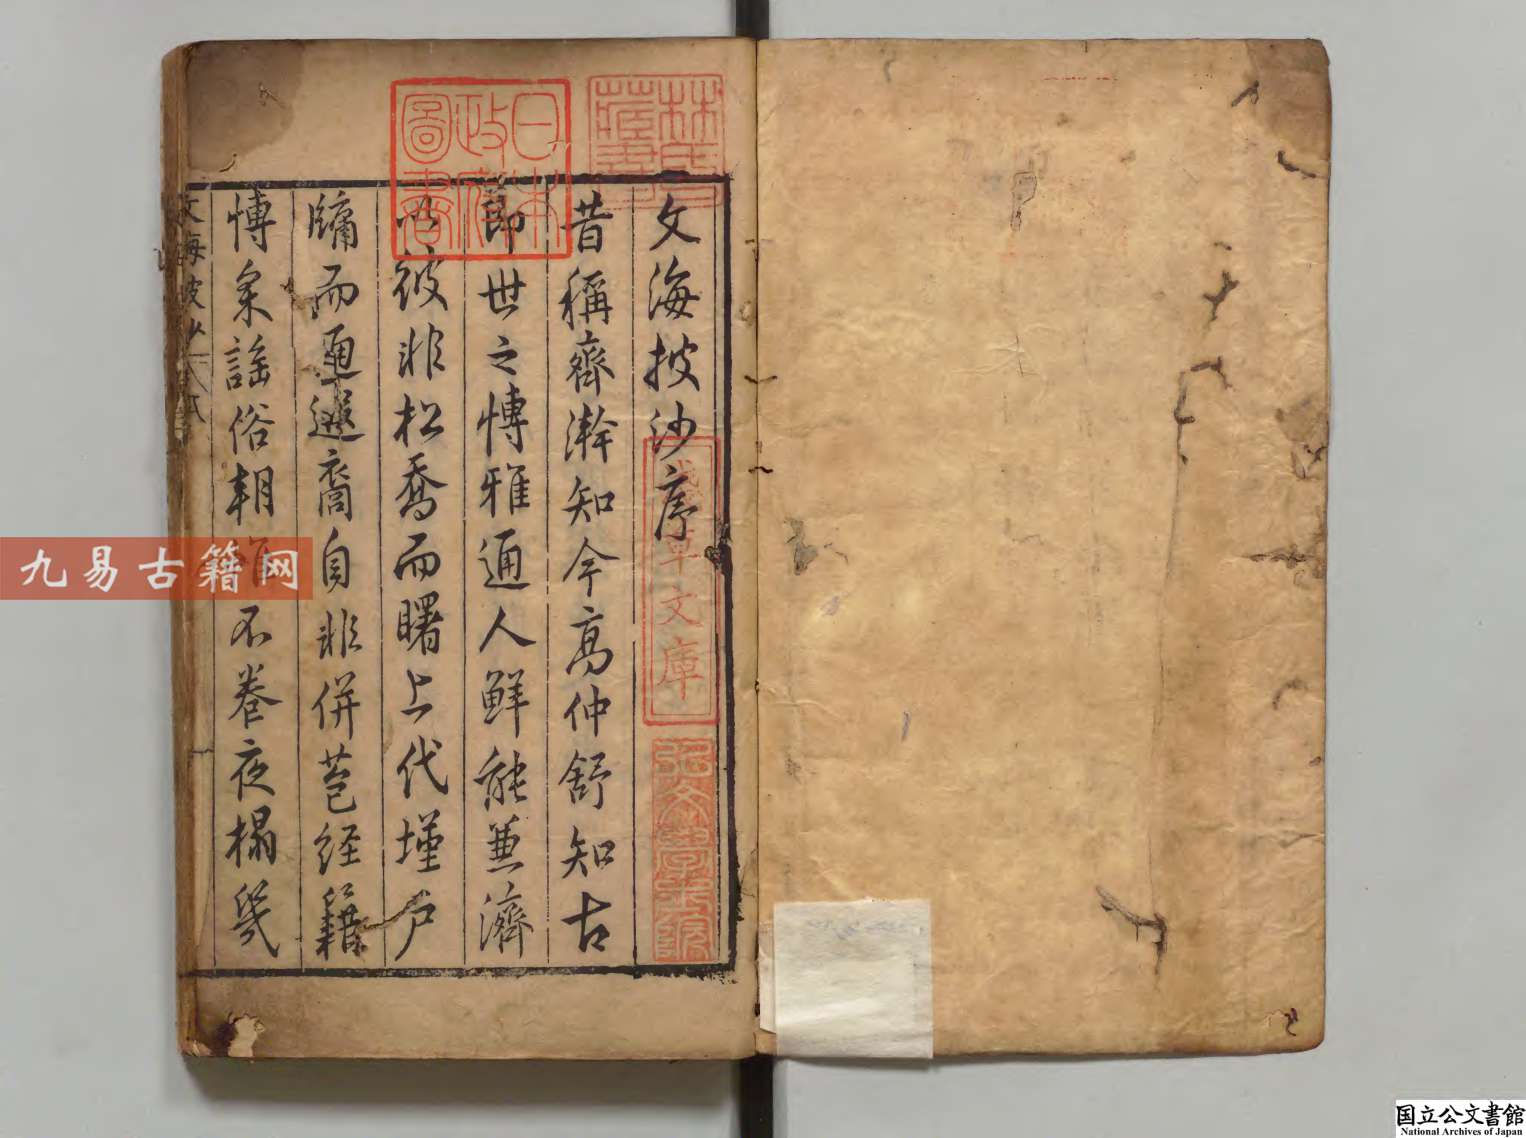 文海披沙序
昔稱齊澣知今高仲舒知古
即世之博雅通人鮮能兼濟
以彼非松喬而曙上代墐户
牖而通遐裔自非併苞经籍
博采謡俗朝 不卷夜榻幾
文海披沙
林氏藏書
日本政府圖書
淺草文庫
弘文學士院
九易古籍网
国立公文書館
National Archives of Japan